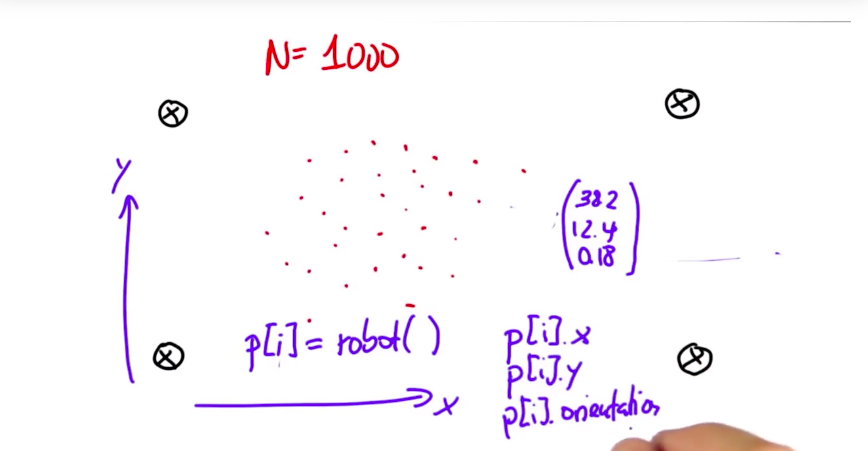 N= 1000
y
38.2
12.4
0.18
p[i]= robot( )
p[i].x
p[i].y
p[i].orientation
x